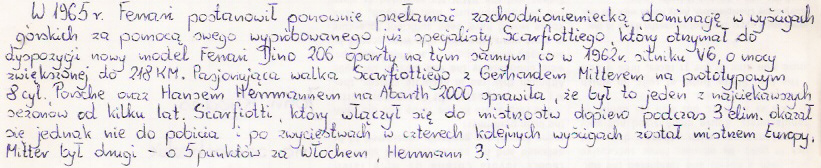 W 1965 r. Ferrari postanowił ponownie przełamać zachodnioniemiecką dominację w wyścigach
górskich za pomocą swego wypróbowanego już specjalisty Scarfiottiego, który otrzymał do
dyspozycji nowy model Ferrari Dino 206 oparty na tym samym co w 1962 r. silniku V6, o mocy
zwiększonej do 218 KM. Pasjonująca walka Scarfiottiego z Gerhardem Mitterem na prototypowym
8 cyl. Porsche oraz Hansem Herrmannem na Abarth 2000 sprawiła, że był to jeden z najciekawszych
sezonów od kilku lat. Scarfiotti, który włączył się do mistrzostw dopiero podczas 3 elim. okazał
się jednak nie do pobicia i po zwycięstwach w czterech kolejnych wyścigach został mistrzem Europy.
Mitter był drugi - o 5 punktów za Włochem, Herrmann 3.